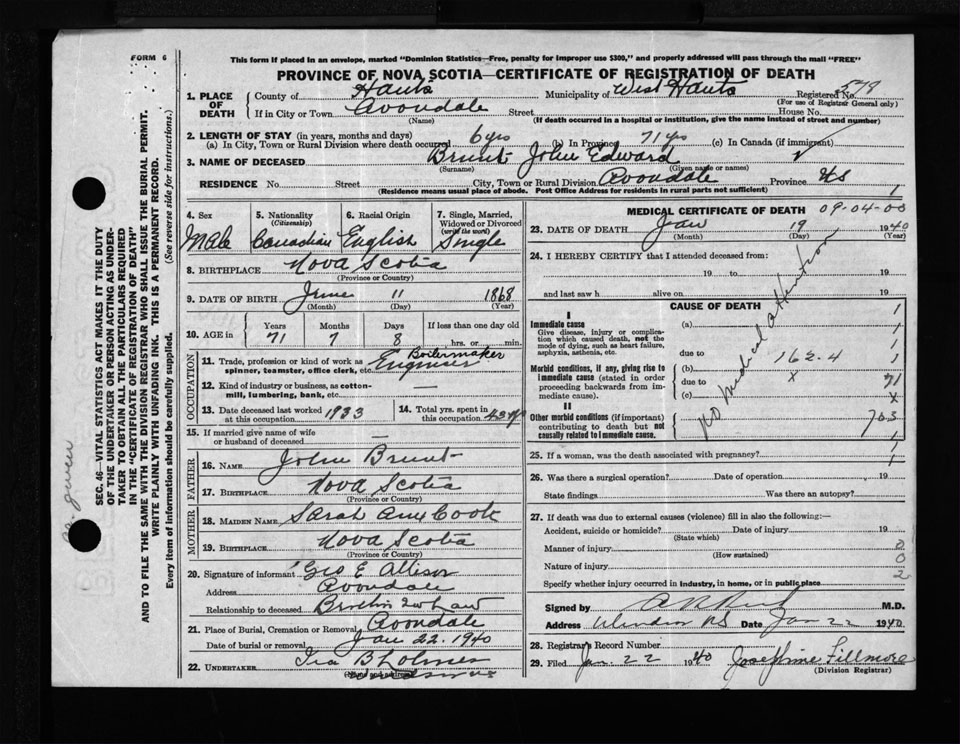 FORM 6
This form if placed in an envelope, marked "Dominion Statistics—Free, penalty for improper use $300," and properly addressed will pass through the mail "FREE"
PROVINCE OF NOVA SCOTIA—CERTIFICATE OF REGISTRATION OF DEATH
1. PLACE OF DEATH County of Hants Municipality of West Hants Registered No. 578
(For use of Registrar General only)
If in City or Town Avondale Street House No.
(Name) (If death occurred in a hospital or institution, give the name instead of street and number)
2. LENGTH OF STAY (in years, months and days)
(a) In City, Town or Rural Division where death occurred 6 yrs (b) In Province 71 yrs (c) In Canada (if immigrant)
3. NAME OF DECEASED Brunt John Edward
(Surname) (Given name or names)
RESIDENCE No. Street City, Town or Rural Division Avondale Province NS
(Residence means usual place of abode. Post Office Address for residents in rural parts not sufficient)
SEC. 46—VITAL STATISTICS ACT MAKES IT THE DUTY
OF THE UNDERTAKER OR PERSON ACTING AS UNDER-
TAKER TO OBTAIN ALL THE PARTICULARS REQUIRED
IN THE "CERTIFICATE OF REGISTRATION OF DEATH"
AND TO FILE THE SAME WITH THE DIVISION REGISTRAR WHO SHALL ISSUE THE BURIAL PERMIT.
WRITE PLAINLY WITH UNFADING INK. THIS IS A PERMANENT RECORD.
Every item of information should be carefully supplied. (See reverse side for instructions.)
4. Sex 5. Nationality (Citizenship) 6. Racial Origin 7. Single, Married, Widowed or Divorced (write the word)
Male Canadian English Single
8. BIRTHPLACE Nova Scotia
(Province or Country)
9. DATE OF BIRTH June 11 1868
(Month) (Day) (Year)
10. AGE in Years Months Days If less than one day old
71 7 8 hrs. or min.
OCCUPATION
11. Trade, profession or kind of work as spinner, teamster, office clerk, etc. Boilermaker Engineer
12. Kind of industry or business, as cotton-mill, lumbering, bank, etc. —
13. Date deceased last worked at this occupation 1933
14. Total yrs. spent in this occupation 43 yrs
15. If married give name of wife or husband of deceased —
FATHER
16. NAME John Brunt
17. BIRTHPLACE Nova Scotia
(Province or Country)
MOTHER
18. MAIDEN NAME Sarah Ann Cook
19. BIRTHPLACE Nova Scotia
(Province or Country)
20. Signature of informant Geo E Allison
Address Avondale
Relationship to deceased Brother in law
21. Place of Burial, Cremation or Removal Avondale
Date of burial or removal Jan 22. 1940
22. UNDERTAKER Ira B Lohnes
(Name and address)
MEDICAL CERTIFICATE OF DEATH 09-04-00
23. DATE OF DEATH Jan 19 1940
(Month) (Day) (Year)
24. I HEREBY CERTIFY that I attended deceased from:
19 to 19
and last saw h alive on 19
CAUSE OF DEATH
I
Immediate cause
Give disease, injury or complication which caused death, not the mode of dying, such as heart failure, asphyxia, asthenia, etc.
(a)
due to
Morbid conditions, if any, giving rise to immediate cause (stated in order proceeding backwards from immediate cause).
(b) 162-4
due to x 71
(c)
II
Other morbid conditions (if important) contributing to death but not causally related to immediate cause.
703
No medical attention
25. If a woman, was the death associated with pregnancy?
26. Was there a surgical operation? Date of operation 19
State findings Was there an autopsy?
27. If death was due to external causes (violence) fill in also the following:—
Accident, suicide or homicide? Date of injury 19
(State which)
Manner of injury 0
(How sustained)
Nature of injury 0
Specify whether injury occurred in industry, in home, or in public place 2
Signed by M.D.
Address Windsor NS Date Jan 22 1940
28. Registrar's Record Number
29. Filed Jan. 22 1940 Josephine Fillmore
(Division Registrar)